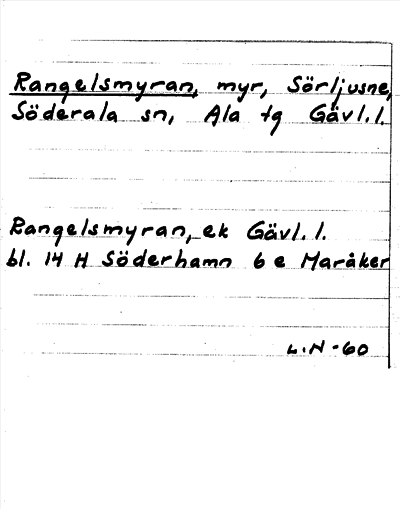 Rangelsmyran, myr, Sörljusne,
Söderala sn, Ala tg Gävl.l.
Rangelsmyran, ek Gävl. l.
bl. 14 H Söderhamn 6 e Maråker
L.N -60